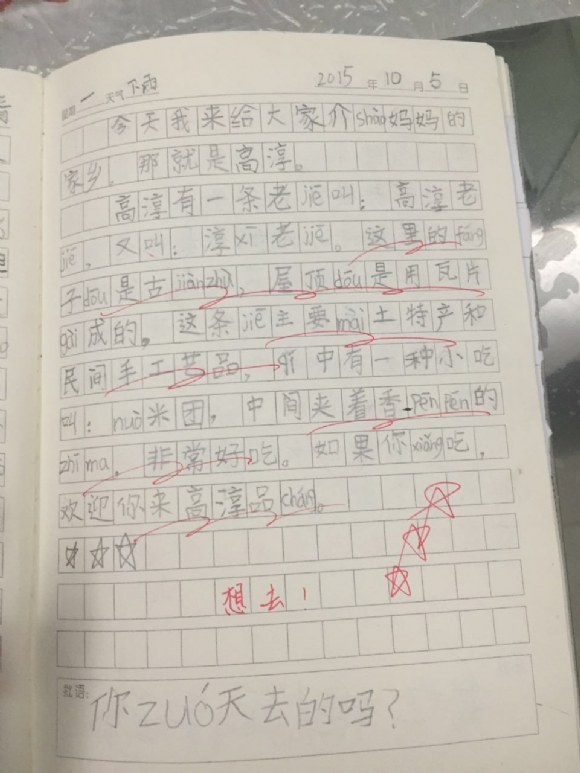 星期 一 天气 下雨 2015 年 10 月 5 日
今天我来给大家介shào妈妈的
家乡，那就是高淳。
高淳有一条老jiē叫：高淳老
jiē，又叫：淳xī老jiē。这里的fáng
子dōu是古jiànzhù，屋顶dōu是用瓦片
gài成的。这条jiē主要mài土特产和
民间手工艺品，qí中有一种小吃
叫：nuò米团，中间夹着香pēnpēn的
zhīma，非常好吃。如果你xiǎng吃，
欢迎你来高淳品cháng。
想去！
批语：
你zuó天去的吗？